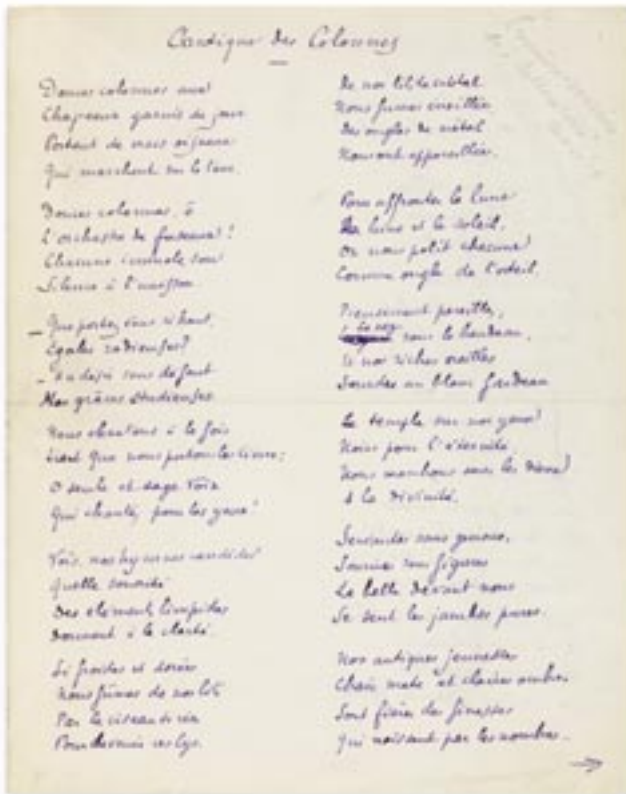 Cantique des Colonnes
Douces colonnes aux
Chapeaux garnis de jour
Portant de vrais oiseaux
Qui marchent sur le tour.
Douces colonnes, ô
L'orchestre de fuseaux !
Chacune immole son
Silence à l'unisson
_ Que portez vous si haut,
Égales radieuses ?
_ Au désir sans défaut
Nos grâces studieuses
Nous chantons à la fois
Que nous portons les cieux ;
O seule et sage voix
Qui chantes pour les yeux !
Vois, nos hymnes candides !
Quelle sonorité
Des élément limpides
Donnent à la clarté.
Si froides et dorées
Nous fûmes de nos lits
Par le ciseau
Pour devenir ces lys.
De nos lits de cristal
Nous fumes éveillées
Des ongles de métal
Nous ont appareillées.
Pour affronter la lune
La lune et le soleil,
On nous polit chacune
Comme ongle de l'orteil.
Pieusement pareilles,
Le nez sous le bandeau,
Et nos riches oreilles
Sourdes au blanc fardeau
Le temple sur nos yeux
Noirs pour l'éternité
Nous marchons sans les dieux
A la divinité.
Servantes sans genoux,
Sourires sans figures
La belle devant nous
Se sent les jambes pures.
Nos antiques jeunesses
Chair mate et claires ombres
Sont fières des finesses
Qui naissent par les nombres.